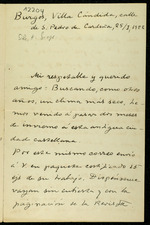 A2204
Burgos, Villa Candida, calle
de S. Pedro de Cardeña, 24/7 1904
Mi respetable y querido
amigo: Buscando, como otros
años, un clima mas seco, he
mos venido á pasar dos meses
de invierno á esta antigua ciu
dad castellana.
Por este mismo correo envio
á V. en paquetes certificado 15
ej. de su trabajo. Dispénseme
vayan sin cubierta y con la
paginación de la Revista